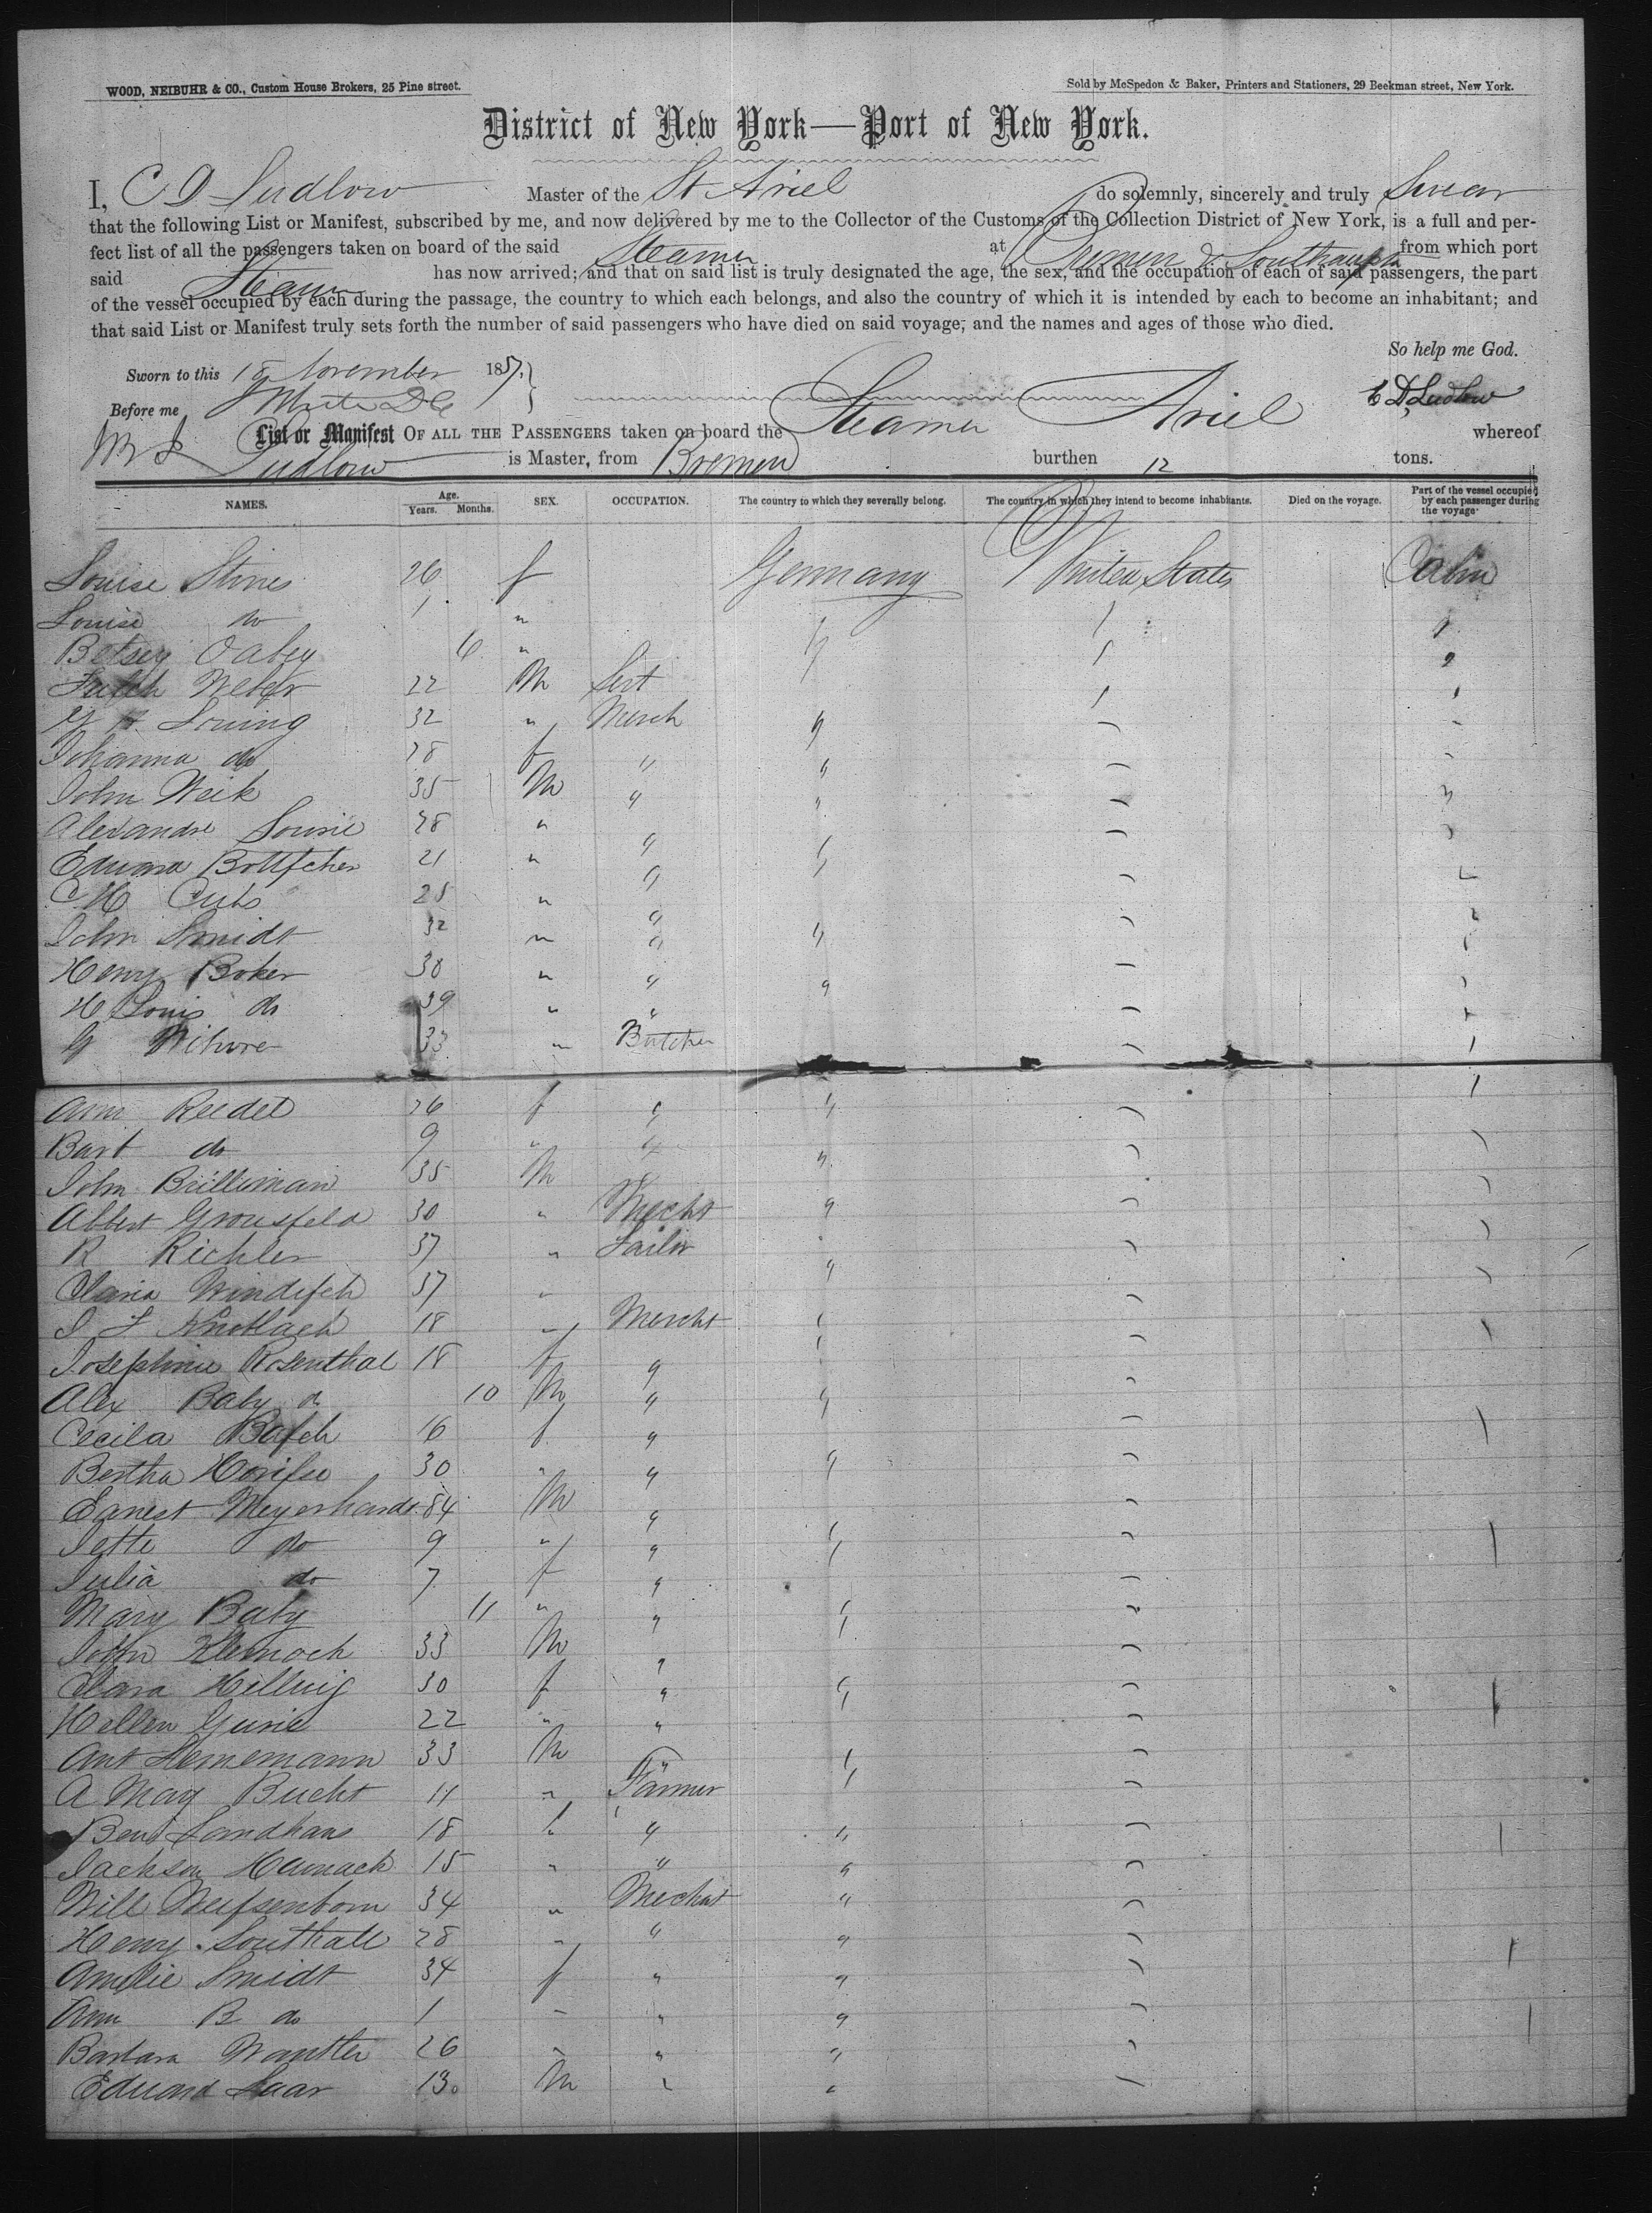 WOOD, NEIBUHR & CO., Custom House Brokers, 25 Pine street.
Sold by McSpedon & Baker, Printers and Stationers, 29 Beekman street, New York.
District of New York—Port of New York.
I, C D Ludlow Master of the St Ariel do solemnly, sincerely and truly Swear
that the following List or Manifest, subscribed by me, and now delivered by me to the Collector of the Customs of the Collection District of New York, is a full and per-
fect list of all the passengers taken on board of the said Steamer at Bremen & Southampton from which port
said Steamer has now arrived; and that on said list is truly designated the age, the sex, and the occupation of each of said passengers, the part
of the vessel occupied by each during the passage, the country to which each belongs, and also the country of which it is intended by each to become an inhabitant; and
that said List or Manifest truly sets forth the number of said passengers who have died on said voyage, and the names and ages of those who died.
So help me God.
Sworn to this 18 November 1857.
C D, Ludlow
Before me
List or Manifest OF ALL THE PASSENGERS taken on board the Steamer Ariel whereof
Ludlow is Master, from Bremen burthen 12 tons.
NAMES. Age. Years. Months. SEX. OCCUPATION. The country to which they severally belong. The country in which they intend to become inhabitants. Died on the voyage. Part of the vessel occupied by each passenger during the voyage
Louise Stines 26 f Germany United States Cabin
Louise do 1 "
Betsey 6 "
Weber 22 M
32 " Merch
Johanna do 28 f "
John Weik 35 M "
Alexandre Lourie 28 " "
Edward Bottfcher 21 " "
C H 25 " "
John Smidt 32 " "
Henry Boker 38 " "
H Louis do 39 " "
G 33 " Butcher
Ann Reedel 26 f "
Bart do 9 " "
John Brilliman 35 M "
Albert Gronsfeld 30 " Mecht
R Richler 37 " Tailor
Clara Windifch 37 "
18 " Mercht
Josephine Rosenthal 18 f "
Alex Baby do 10 M "
Cecila Bafch 16 f "
Bertha 30 " "
Earnest Meyerhardt 34 M "
Jette do 9 " "
Julia do 7 f "
Mary Baby 11 " "
John 33 M "
Clara Hillwig 30 f "
Hellen 22 " "
Ant Hennemann 33 M "
A May Bucht 11 " Farmer
Ben Landhaus 18 " "
Jackson Hamach 15 " "
Will Weifsenborn 34 " Mechat
Henry Southall 28 " "
Amelie Smidt 34 f "
Ann B do 1 " "
Barbara Wantler 26 " "
Eduard Laar 13 M "